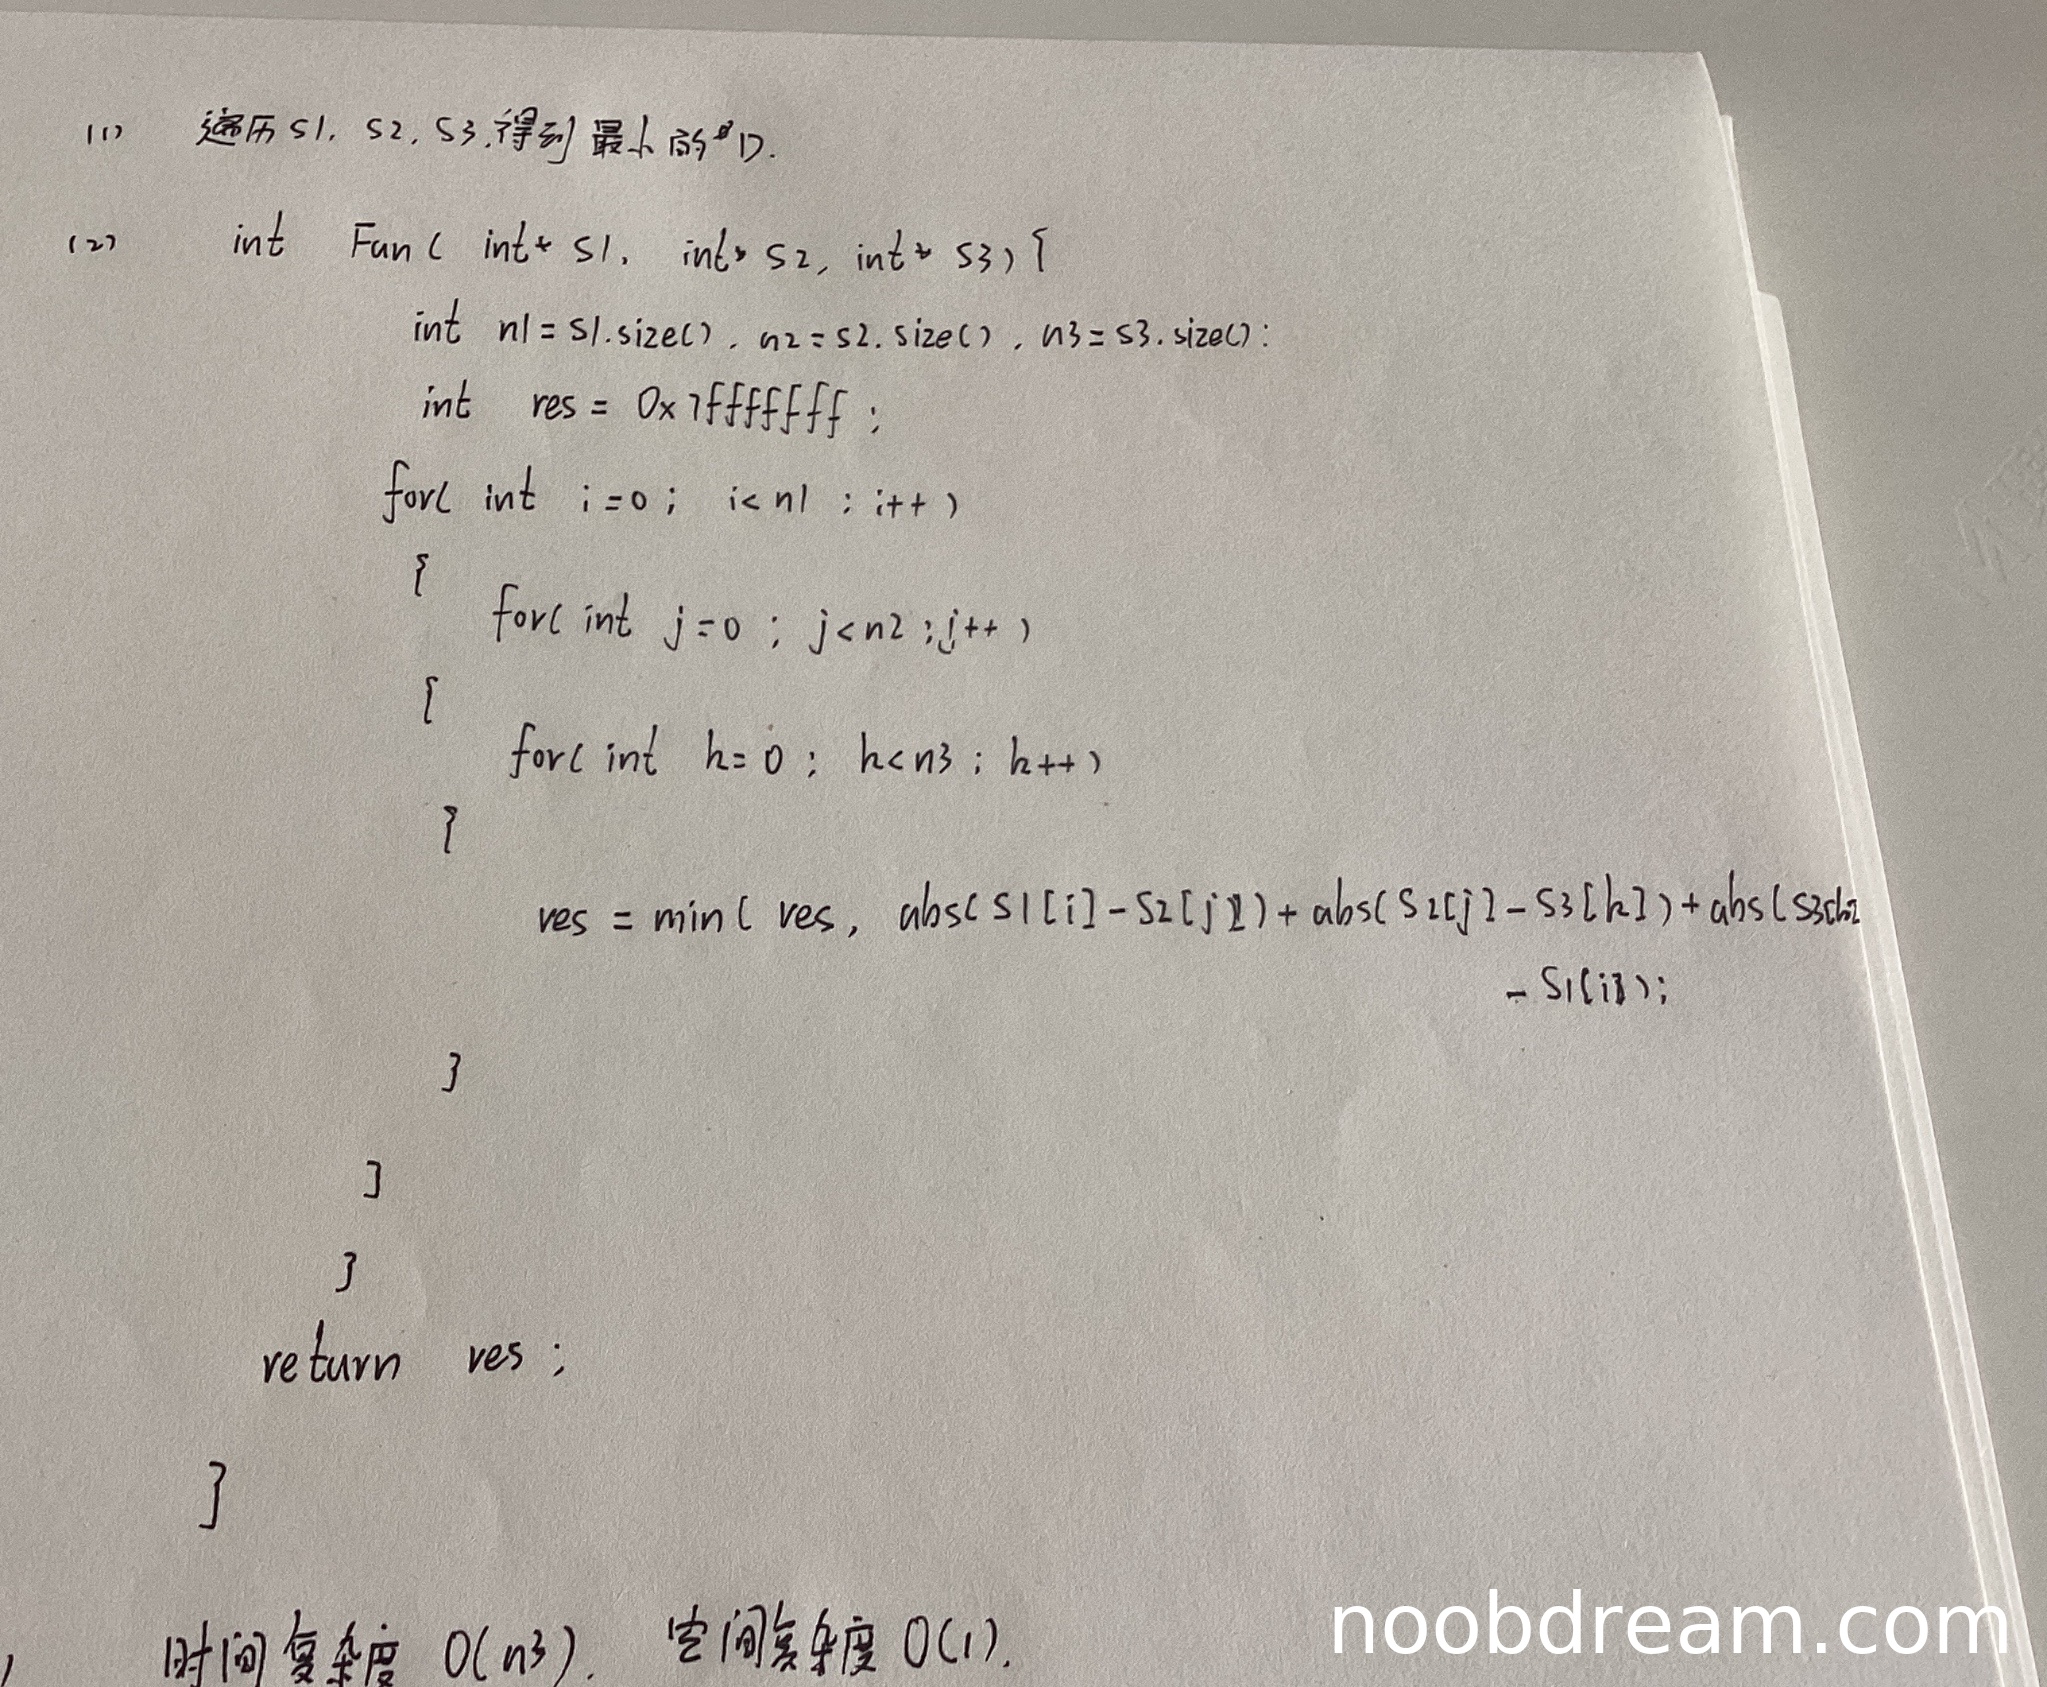 (1) 遍历 S1, S2, S3,得到最小的D.
(2) int Fun( int* S1, int* S2, int* S3){
int n1=S1.size(), n2=S2.size(), n3=S3.size();
int res = 0x7fffffff;
for( int i=0; i<n1; i++)
{
for( int j=0; j<n2; j++)
{
for( int k=0; k<n3; k++)
{
res = min( res, abs(S1[i]-S2[j])+abs(S2[j]-S3[k])+abs(S3[k]
-S1[i]);
}
}
}
return res;
}
) 时间复杂度 O(n3). 空间复杂度 O(1).
noobdream.com